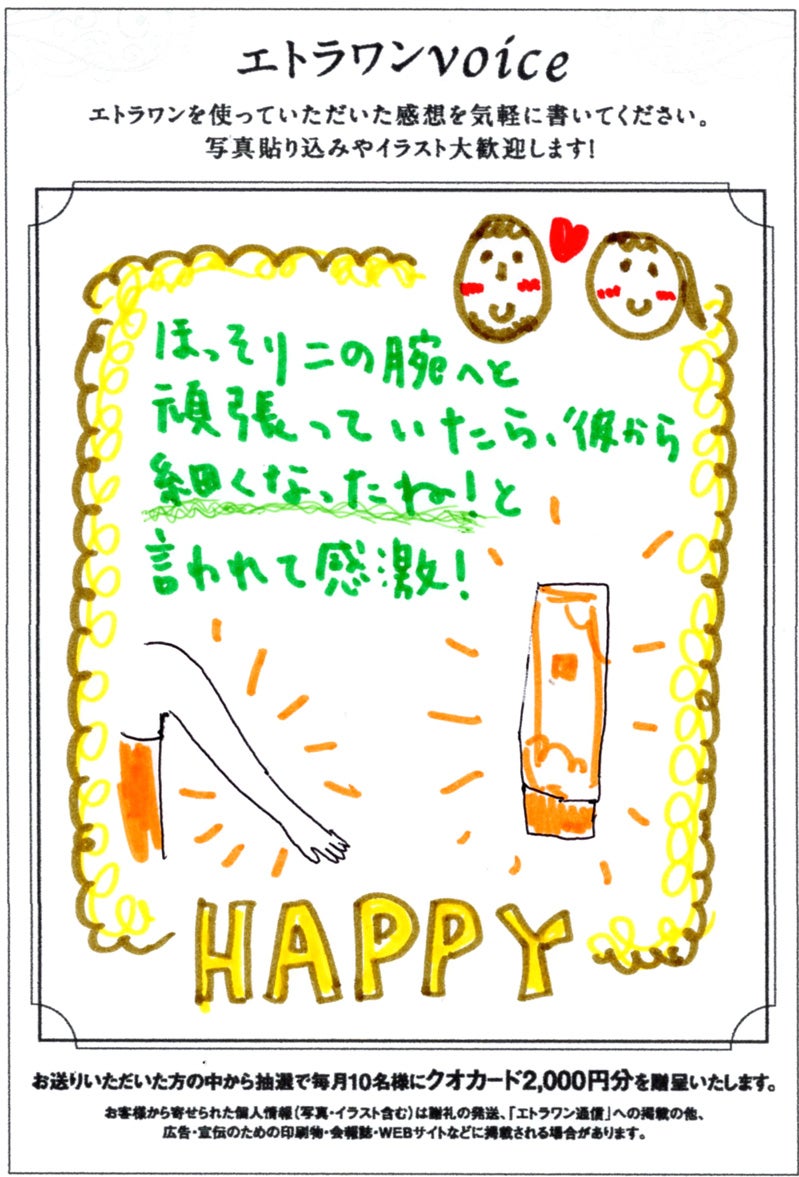 エトラワンvoice
エトラワンを使っていただいた感想を気軽に書いてください。
写真貼り込みやイラスト大歓迎します!
ほっそり二の腕へと
頑張っていたら、彼から
細くなったね!と
言われて感激!
HAPPY
お送りいただいた方の中から抽選で毎月10名様にクオカード2,000円分を贈呈いたします。
お客様から寄せられた個人情報(写真・イラスト含む)は謝礼の発送、「エトラワン通信」への掲載の他、
広告・宣伝のための印刷物・会報誌・WEBサイトなどに掲載される場合があります。